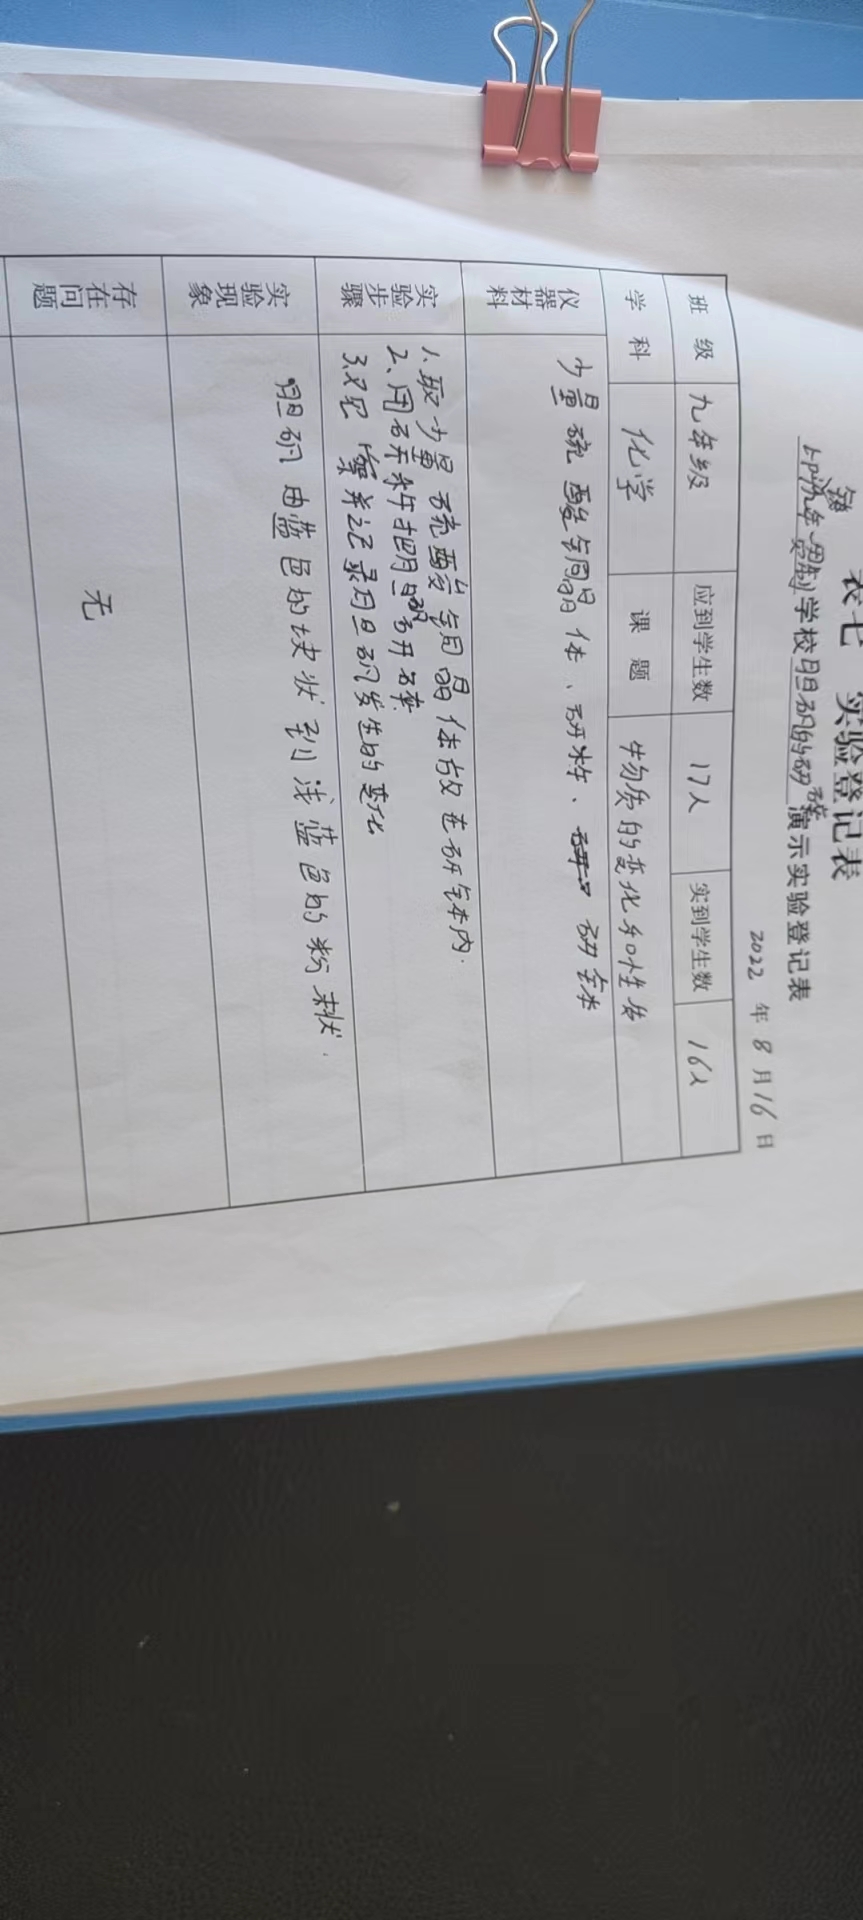 表七 实验登记表
九年一贯制学校胆矾的研碎演示实验登记表
2022 年 8 月 16 日
班 级 九年级 应到学生数 17人 实到学生数 16人
学 科 化学 课 题 物质的变化和性质
仪器材料 少量硫酸铜晶体、研杵、研钵
实验步骤 1、取少量硫酸铜晶体放在研钵内.
2、用研杵把胆矾研碎
3、观察并记录胆矾发生的变化
实验现象 胆矾由蓝色的块状到浅蓝色的粉末状.
存在问题 无